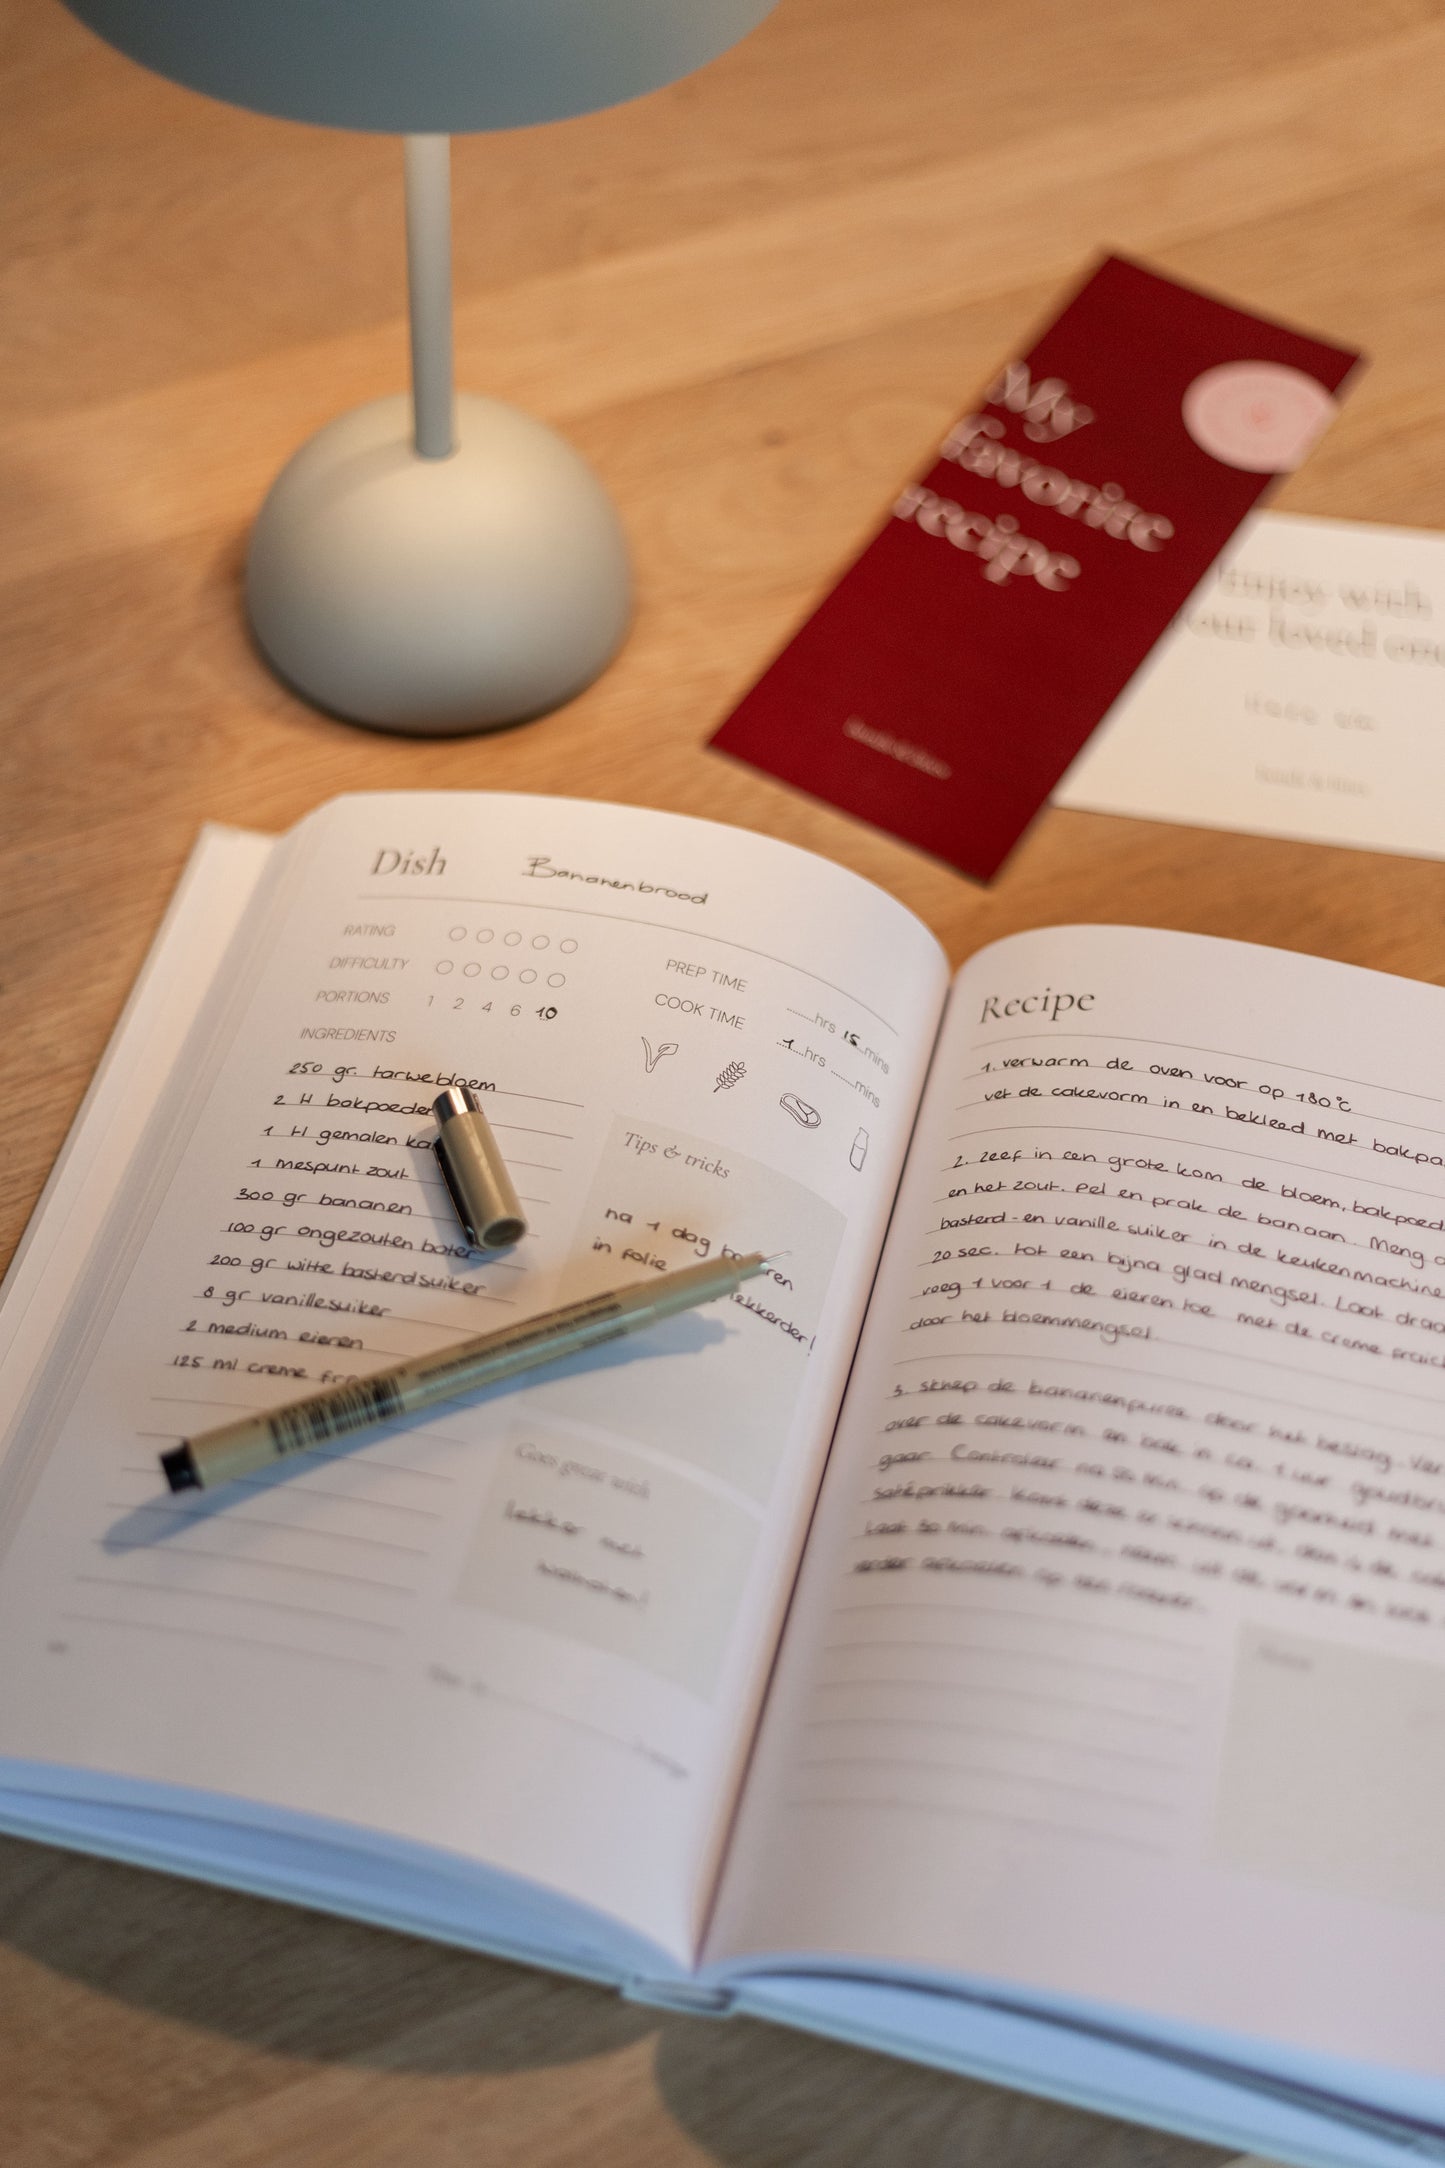 My
favorite
recipe
Enjoy with
your loved
Dish Bananenbrood
RATING
DIFFICULTY
PORTIONS 1 2 4 6 10
PREP TIME hrs 15 mins
COOK TIME 1 hrs mins
INGREDIENTS
250 gr. tarwebloem
2 tl bakpoeder
1 tl gemalen
1 mespunt zout
300 gr bananen
100 gr ongezouten boter
200 gr witte basterdsuiker
8 gr vanillesuiker
2 medium eieren
125 ml creme
Tips & tricks
na 1 dag
in folie
lekkerder!
Goes great with
lekker met
Recipe
1. verwarm de oven voor op 180°C
vet de cakevorm in en bekleed met
2. zeef in een grote kom de bloem,
en het zout. Pel en prak de banaan. Meng
basterd- en vanille suiker in de keukenmachine
20 sec. tot een bijna glad mengsel. Laat
voeg 1 voor 1 de eieren toe met de creme
door het bloemmengsel
3. schep de bananenpuree door het beslag.
over de cakevorm en bak in ca. 1 uur
gaar. Controleer na 50 min. op de gaarheid met
satéprikker.
Laat 30 min. afkoelen,
verder afkoelen op een rooster.
Notes